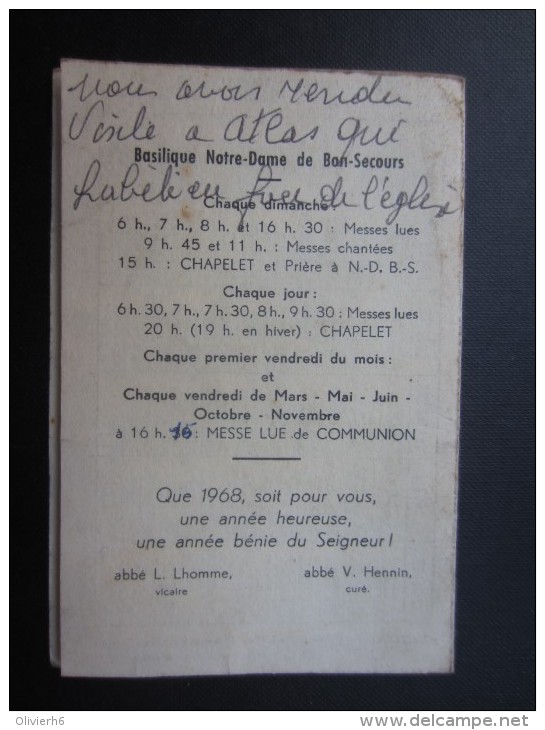 nous avons rendu
Visite a Atlas qui
Basilique Notre-Dame de Bon-Secours
habite en face de l'église
Chaque dimanche :
6 h., 7 h., 8 h. et 16 h. 30 : Messes lues
9 h. 45 et 11 h. : Messes chantées
15 h. : CHAPELET et Prière à N.-D. B.-S.
Chaque jour :
6 h. 30, 7 h., 7 h. 30, 8 h., 9 h. 30 : Messes lues
20 h. (19 h. en hiver) : CHAPELET
Chaque premier vendredi du mois :
et
Chaque vendredi de Mars - Mai - Juin -
Octobre - Novembre
à 16 h. 15 : MESSE LUE de COMMUNION
Que 1968, soit pour vous,
une année heureuse,
une année bénie du Seigneur !
abbé L. Lhomme, abbé V. Hennin,
vicaire curé.
Olivierh6
delcampe.net